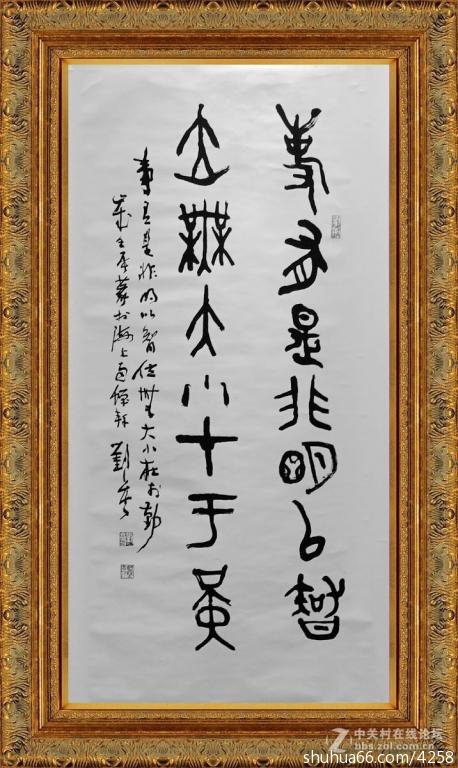 事有是非明以智
立無大小才于堇
事有是非明以智位無大小在於勤
海上
劉
中关村在线论坛
bbs.zol.com.cn
shuhua66.com/4258